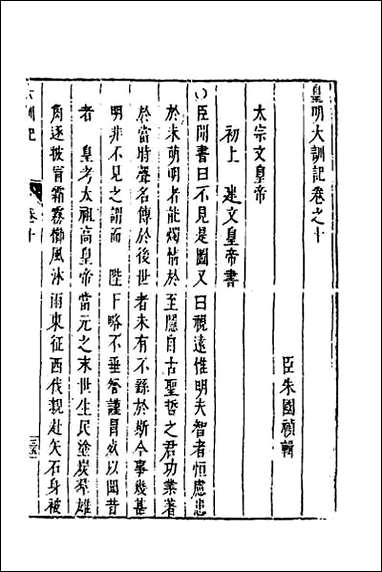 皇明大訓記卷之十
臣朱國禎輯
太宗文皇帝
初上建文皇帝書
臣聞書曰不見是圖又曰視遠惟明夫智者恒慮患
於未萌明者能燭情於至隱自古聖哲之君功業著
於當時聲名傳於後世者未有不繇於斯今事幾甚
明非不見之謂而 陛下略不垂察謹冒以聞昔
者 皇考太祖高皇帝當元之末世生民塗炭羣雄
角逐披冒霜露櫛風沐雨東征西伐親赴矢石身被
大訓記
卷十